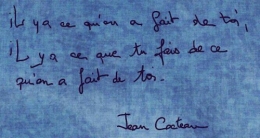 il y a ce qu'on a fait de toi,
il y a ce que tu fais de ce
qu'on a fait de toi.
Jean Cocteau